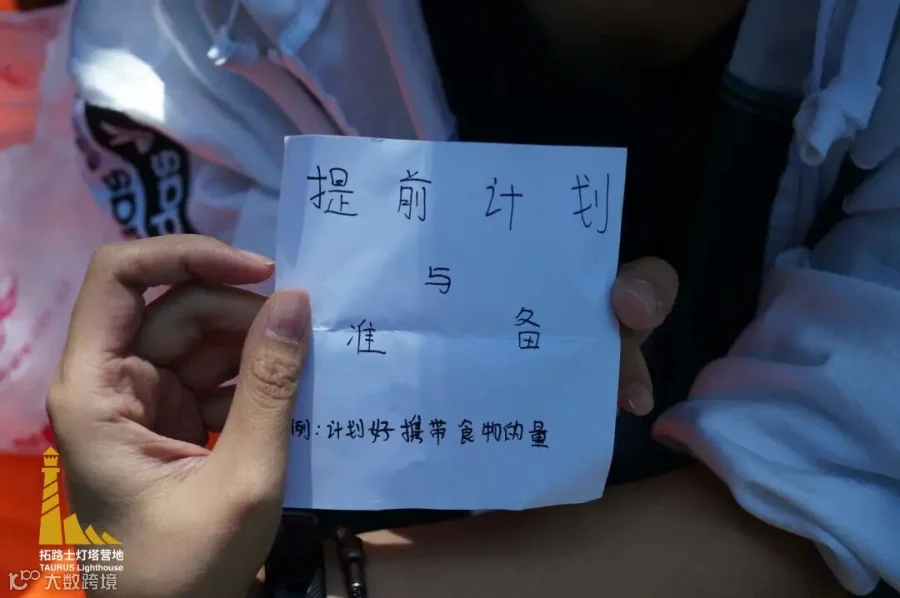 提前计划
与
准备
例:计划好携带食物的量
拓路士灯塔营地
TAURUS Lighthouse
大数跨境